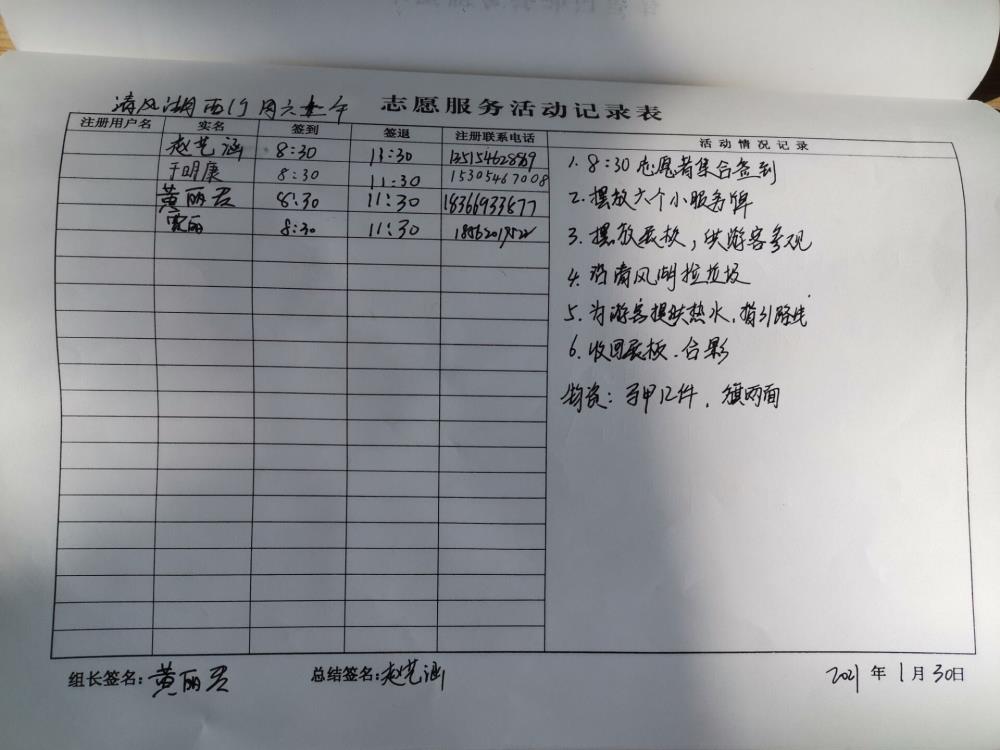 清风湖西行周六上午 志愿服务活动记录表
注册用户名 实名 签到 签退 注册联系电话 活动情况记录
赵艺涵 8:30 11:30
于明康 8:30 11:30 15305467008
黄丽君 8:30 11:30 18366933877
丽 8:30 11:30
1. 8:30志愿者集合签到
2. 摆放六个小服务牌
3. 摆放展板，供游客参观
4. 沿清风湖捡垃圾
5. 为游客提供热水，指引路线
6. 收回展板、合影
物资：马甲12件，旗两面
组长签名：黄丽君 总结签名：赵艺涵 2021年1月30日